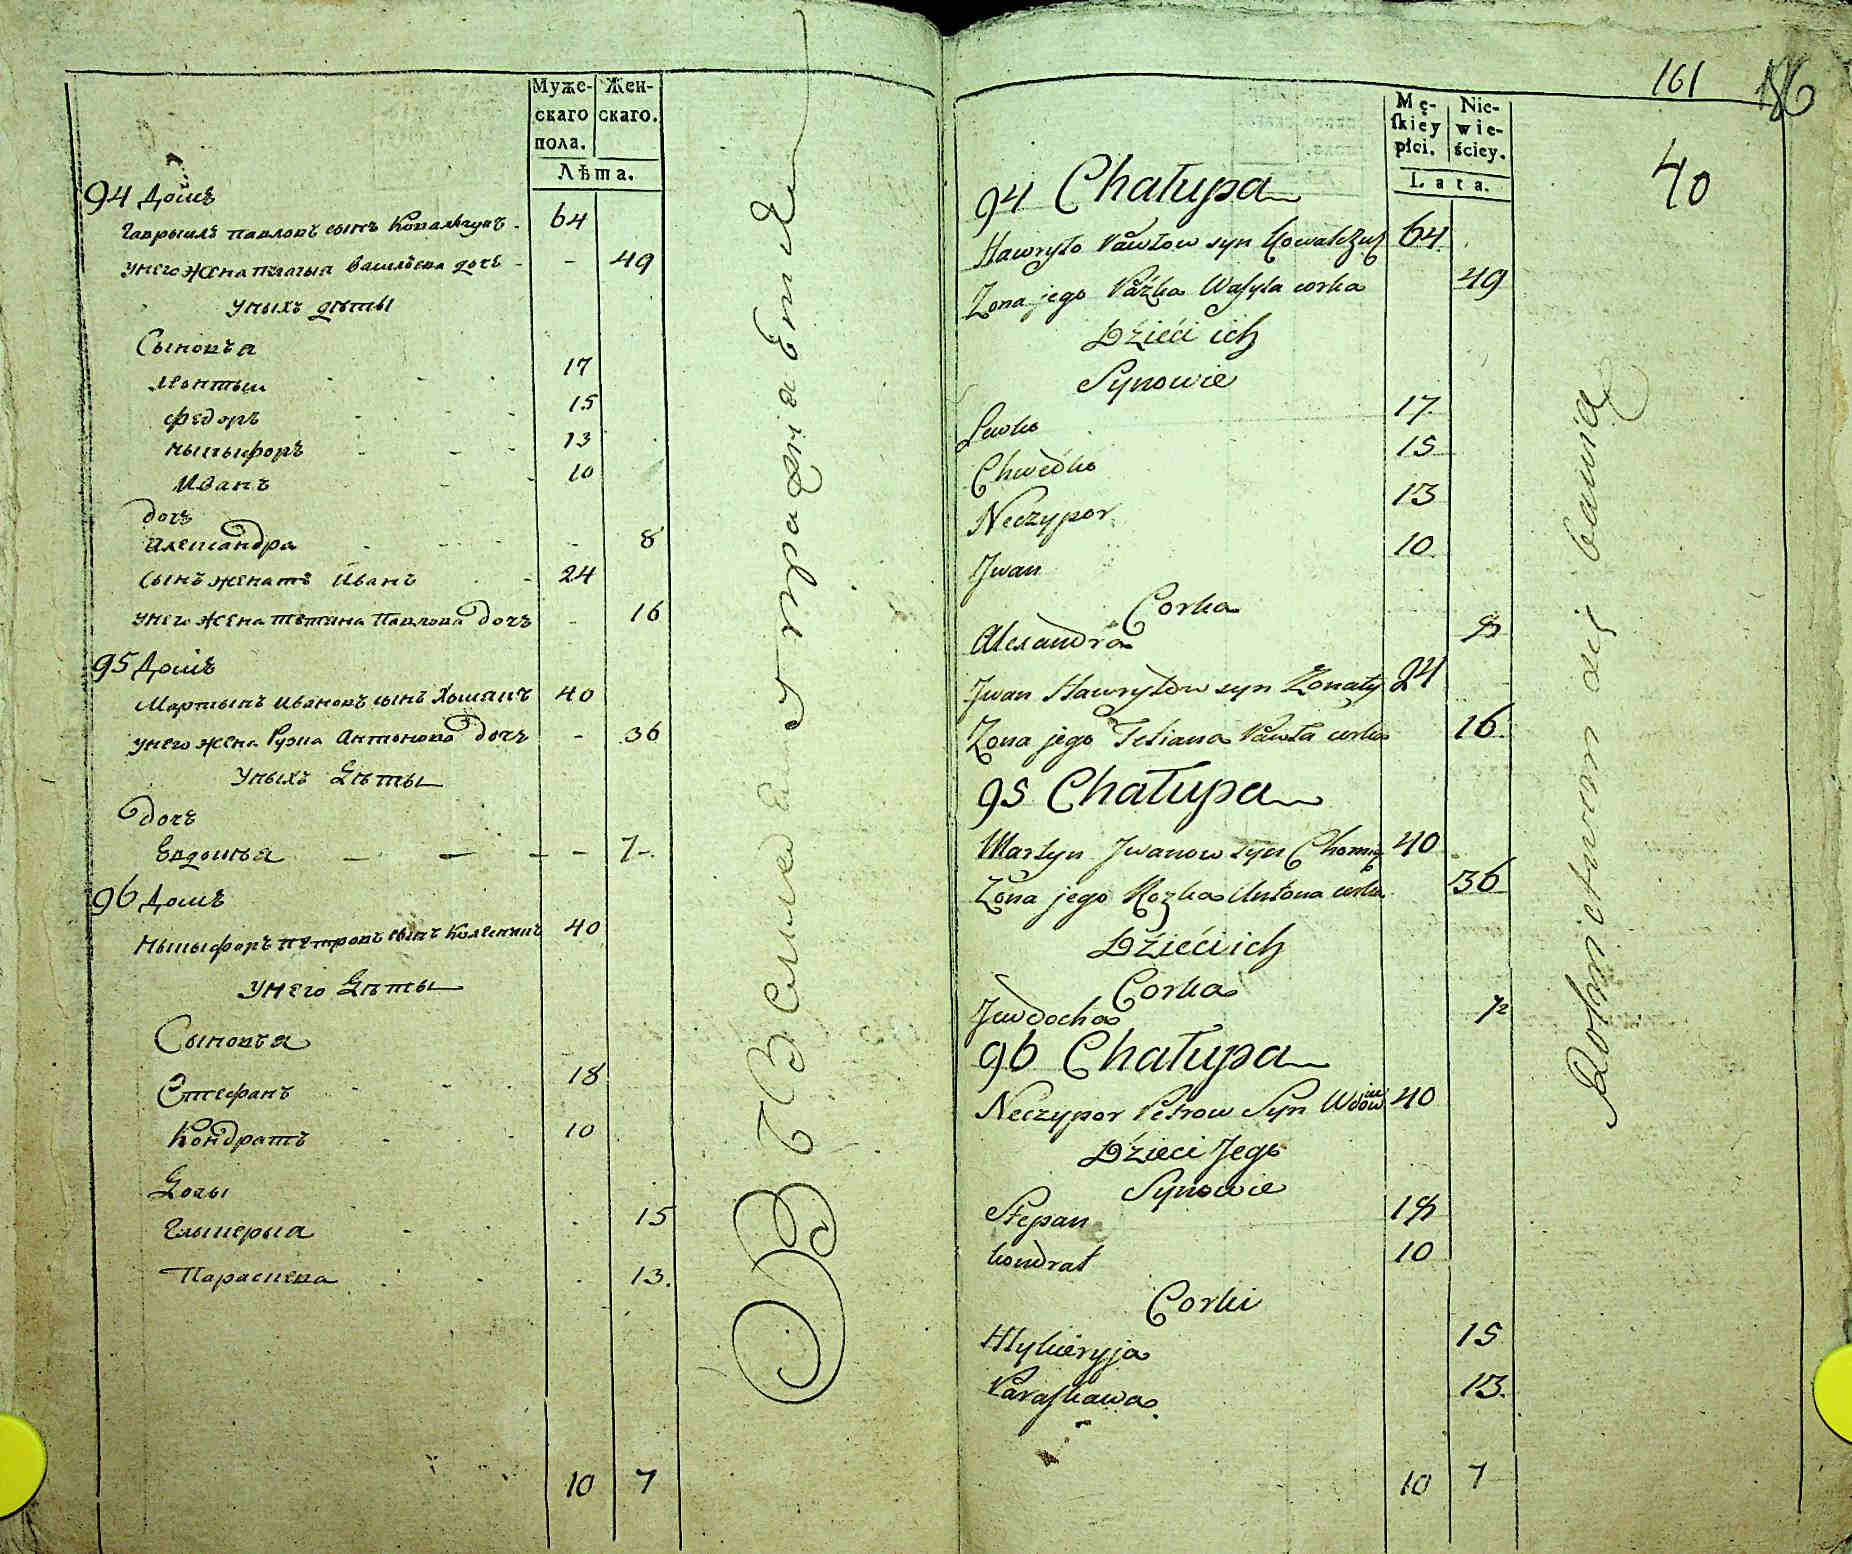 Муже- Жен-
скаго скаго.
пола.
Лѣта.
94 Домъ
Гаврыилъ павловъ сынъ Ковальчукъ 64
унего жена пелагыя васильева дочь - 49
уныхъ дѣты
Сыновъя
леонтый 17
федоръ 15
ныкыфоръ 13
Иванъ 10
дочъ
Александра 8
сынъ женатъ Иванъ 24
унего жена тетяна Павлова дочъ - 16
95 Домъ
Мартынъ Ивановъ сынъ 40
унего жена Рузка Антонова дочъ - 36
Уныхъ Дѣты
дочъ
Евдокъя - - - - 7-.
96 Домъ
Ныкыфоръ петровъ сынъ 40
унего Дѣты
Сыновъя
Стефанъ 18
Кондратъ 10
Дочы
Глыкерыя 15
Параскева 13.
10 7
161
40
Mę- Nie-
ſkiey wie-
płci. ściey.
Lata.
94 Chałupa
Hawryło Pawłow syn Kowalczuk 64
Zona jego Paźka Waſyla corka 49
Dzieci ich
Synowie
Lewko 17
Chwedko 15
Neczypor 13
Jwan 10
Corka
Alexandra 8
Jwan Hawryłow syn Zonaty 24
Zona jego Tetiana Pawła corka 16
95 Chałupa
Martyn Jwanow syn 40
Zona jego Rozka Antona corka 36
Dzieci ich
Corka
Jewdocha 7
96 Chałupa
Neczypor Petrow Syn Wdowiec 40
Dzieci Jego
Synowie
Stepan 18
kondrat 10
Corki
Hlykieryja 15
Paraſkawa 13.
10 7
Rolnictwem się bawią